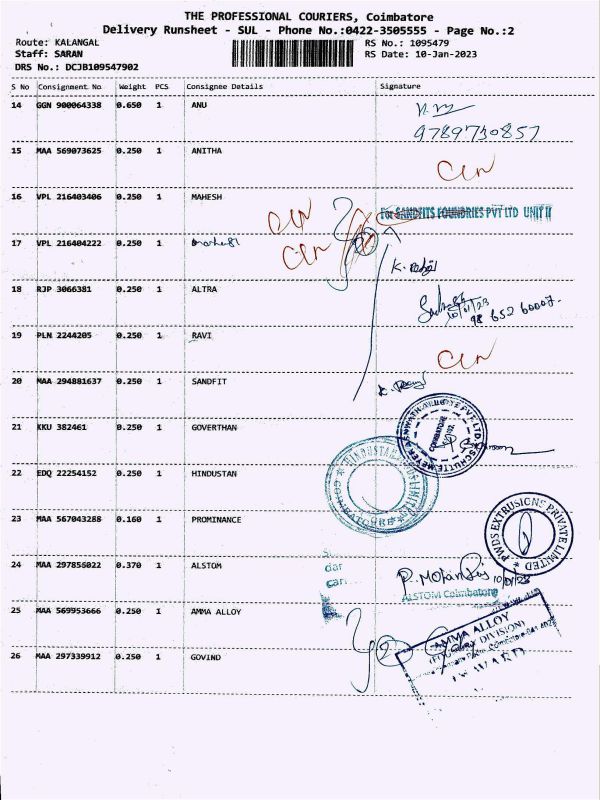 THE PROFESSIONAL COURIERS, Coimbatore
Delivery Runsheet - SUL - Phone No.:0422-3505555 - Page No.:2
Route: KALANGAL
RS No.: 1095479
Staff: SARAN
RS Date: 10-Jan-2023
DRS No.: DCJB109547902
S No Consignment No Weight PCS Consignee Details Signature
14 GGN 900064338 0.650 1 ANU
9789730857
15 MAA 569073625 0.250 1 ANITHA
16 VPL 216403406 0.250 1 MAHESH
For SANDFITS FOUNDRIES PVT LTD UNIT II
17 VPL 216404222 0.250 1
18 RJP 3066381 0.250 1 ALTRA
10/01/23
98 652 60007.
19 PLN 2244205 0.250 1 RAVI
20 MAA 294881637 0.250 1 SANDFIT
21 KKU 382461 0.250 1 GOVERTHAN
COIMBATORE
22 EDQ 22254152 0.250 1 HINDUSTAN
COIMBATORE
23 MAA 567043288 0.160 1 PROMINANCE
PWDS EXTRUSIONS PRIVATE LIMITED
24 MAA 297856022 0.370 1 ALSTOM
10/01/23
ALSTOM Coimbatore
25 MAA 569953666 0.250 1 AMMA ALLOY
AMMA ALLOY
DIVISION)
INWARD
26 MAA 297339912 0.250 1 GOVIND